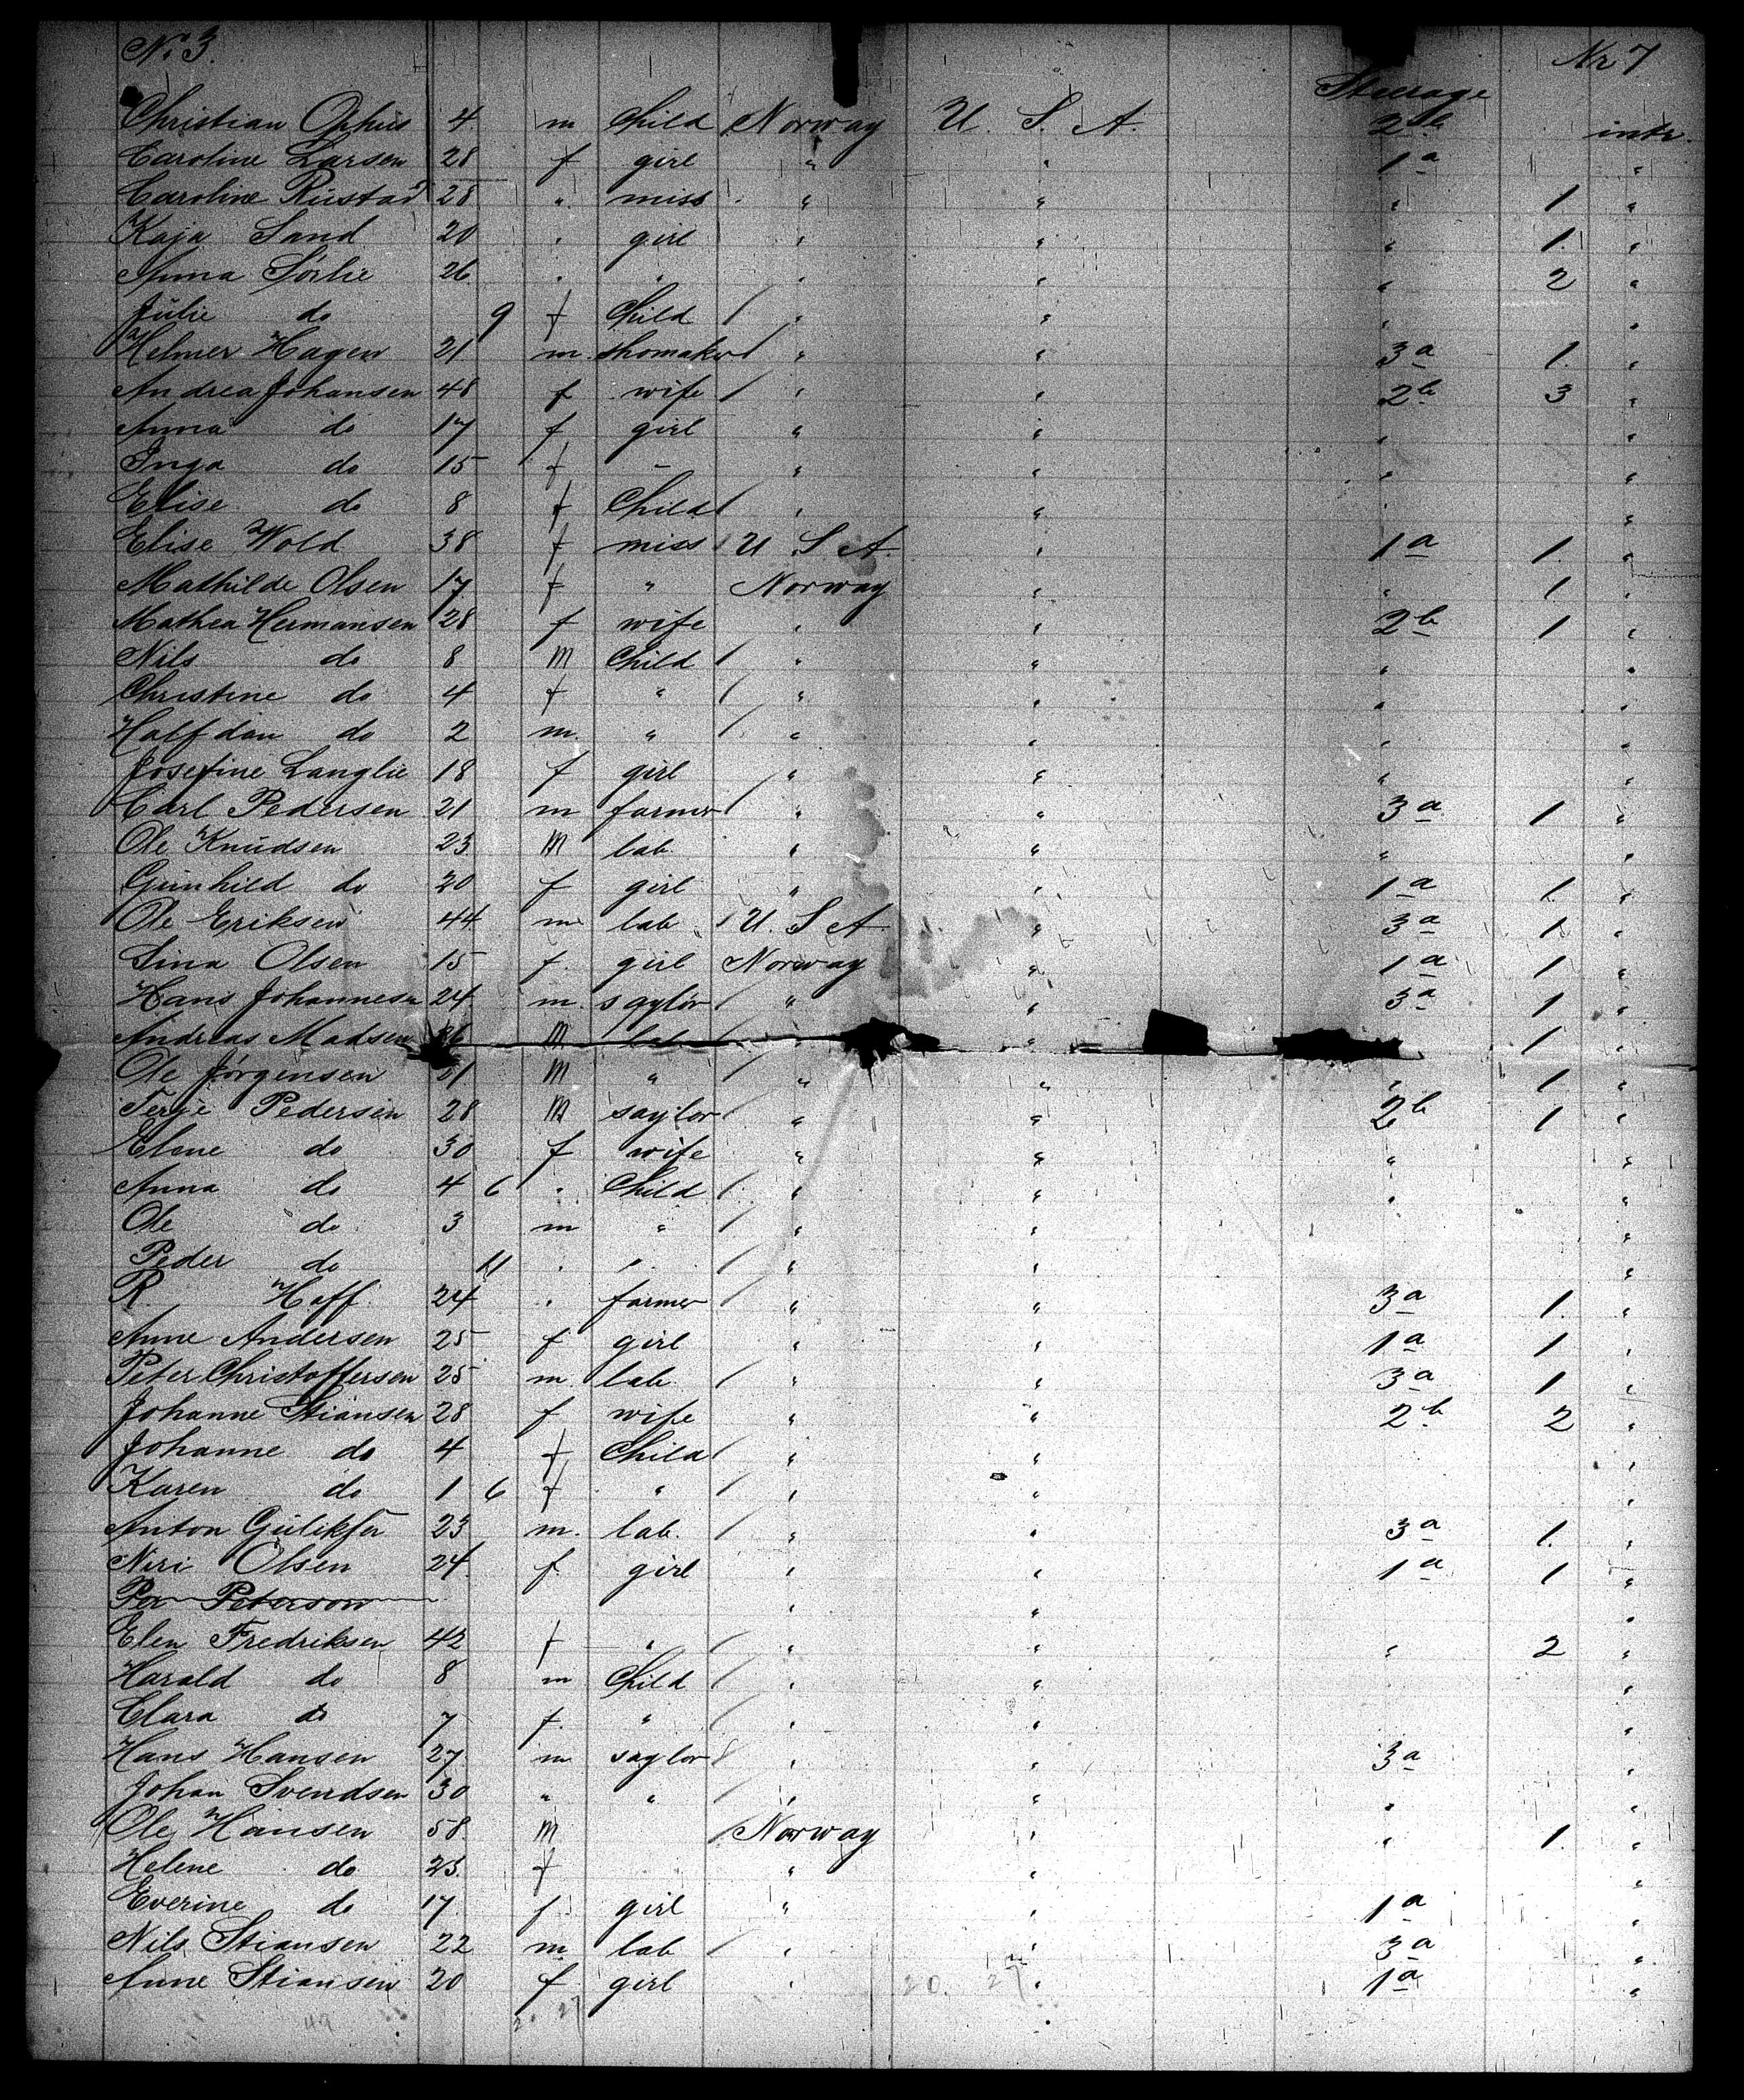 No 3. Nr 7
Steerage
Christian Ophus 4 m Child Norway U. S. A. 2b intr.
Caroline Larsen 28 f girl " " 1a "
Caroline Rustad 28 " miss " " " 1 "
Kaja Sand 20 " girl " " " 1 "
Anna Sörlie 26 " " " " " 2 "
Julie do 9 f Child / " " " "
Helmer Hagen 21 m shomaker / " " 3a 1. "
Andrea Johansen 48 f wife / " " 2b 3 "
Anna do 17 f girl " " " "
Inga do 15 f - " " " "
Elise do 8 f Child / " " " "
Elise Wold 38 f miss / U S A. " 1a 1. "
Mathilde Olsen 17 f " Norway " " 1 "
Mathea Hermansen 28 f wife " " 2b 1 "
Nils do 8 m Child / " " " "
Christine do 4 f " / " " " "
Halfdan do 2 m. " / " " " "
Josefine Langlie 18 f girl / " " " "
Carl Pedersen 21 m farmer / " " 3a 1 "
Ole Knudsen 23 m lab. " " " "
Gunhild do 20 f girl " " 1a 1. "
Ole Eriksen 44 m lab / U. S A " 3a 1 "
Lina Olsen 15 f. girl Norway " 1a 1 "
Hans Johannesn 24 m. saylor / " " 3a 1 "
Andreas Madsen m lab / " " 1 "
Ole Jörgensen 21 m " / " " " 1 "
Terje Pedersen 28 m saylor / " " 2b 1 "
Elene do 30 f wife " " " "
Anna do 4 6 " Child / " " " "
Ole do 3 m " / " " "
Peder do 11 " " / " " "
R. Hoff 24 " farmer / " " 3a 1. "
Anne Andersen 25 f girl " " 1a 1 "
Peter Christoffersen 25 m lab. / " " 3a 1 "
Johanne Stiansen 28 f wife " " 2b 2 "
Johanne do 4 f Child / " " "
Karen do 1 6 f " / " " "
Anton Guliksen 23 m. lab. / " " 3a 1. "
Niri Olsen 24 f girl " " 1a 1 "
Per Peterson " " "
Elen Fredriksen 42 f " / " " " 2 "
Harald do 8 m Child / " " "
Clara do 7 f. " / " " "
Hans Hansen 27 m saylor / " " 3a "
Johan Svendsen 30 " " / " " " "
Ole Hansen 58 m / Norway " " 1. "
Helene do 25 f " " "
Everine do 17 f girl " " 1a "
Nils Stiansen 22 m lab / " " 3a "
Anne Stiansen 20 f girl " " 1a "
20. 27
49 27